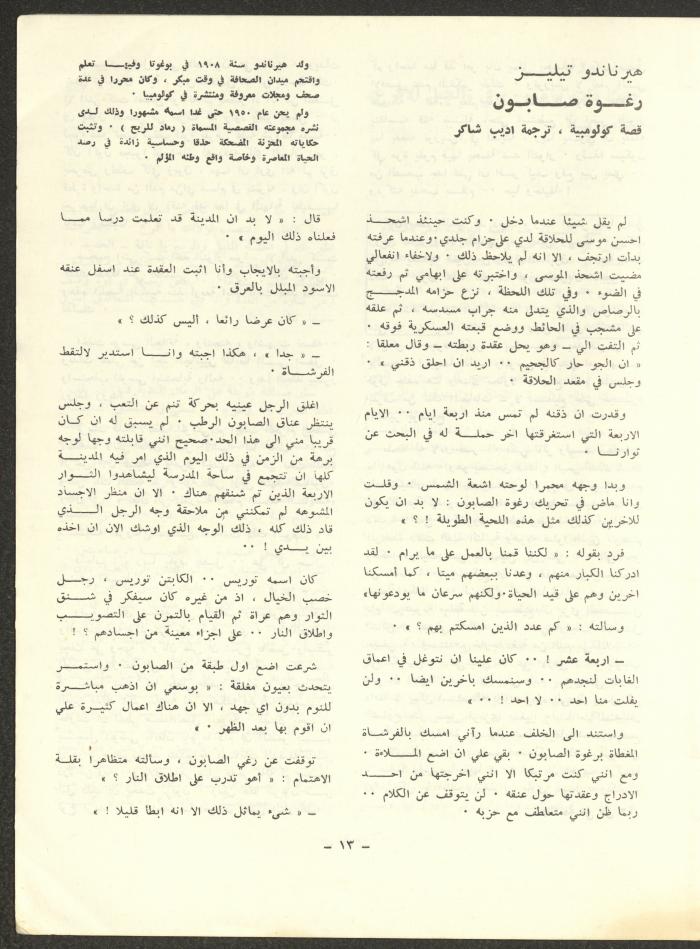 هيرناندو تيليز
رغوة صابون
قصة كولومبية ، ترجمة اديب شاكر
ولد هيرناندو سنة ١٩٠٨ في بوغوتا وفيها تعلم
واقتحم ميدان الصحافة في وقت مبكر ، وكان محررا في عدة
صحف ومجلات معروفة ومنتشرة في كولومبيا ٠
ولم يحن عام ١٩٥٠ حتى غدا اسمه مشهورا وذلك لدى
نشره مجموعته القصصية المسماة ( رماد للريح ) ٠ وتثبت
حكاياته المحزنة المضحكة حذقا وحساسية زائدة في رصد
الحياة المعاصرة وخاصة واقع وطنه المؤلم ٠
لم يقل شيئا عندما دخل ٠ وكنت حينئذ اشحذ
احسن موسى للحلاقة لدي على حزام جلدي٠وعندما عرفته
بدأت ارتجف ، الا انه لم يلاحظ ذلك ٠ ولاخفاء انفعالي
مضيت اشحذ الموسى ، واختبرته على ابهامي ثم رفعته
في الضوء ٠ وفي تلك اللحظة ، نزع حزامه المدجج
بالرصاص والذي يتدلى منه جراب مسدسه ، ثم علقه
على مشجب في الحائط ووضع قبعته العسكرية فوقه ٠
ثم التفت الي ــ وهو يحل عقدة ربطته ــ وقال معلقا :
« ان الجو حار كالجحيم ٠٠ اريد ان احلق ذقني » ٠
وجلس في مقعد الحلاقة ٠
وقدرت ان ذقنه لم تمس منذ اربعة ايام ٠٠ الايام
الاربعة التي استغرقتها اخر حملة له في البحث عن
ثوارنا ٠
وبدا وجهه محمرا لوحته اشعة الشمس ٠ وقلت
وانا ماض في تحريك رغوة الصابون : لا بد ان يكون
للاخرين كذلك مثل هذه اللحية الطويلة ! ؟ »
فرد بقوله : « لكننا قمنا بالعمل على ما يرام ٠ لقد
ادركنا الكبار منهم ، وعدنا ببعضهم ميتا ، كما أمسكنا
اخرين وهم على قيد الحياة٠ولكنهم سرعان ما يودعونها»
وسالته : « كم عدد الذين امسكتم بهم ؟ » ٠
ــ اربعة عشر ! ٠٠ كان علينا ان نتوغل في اعماق
الغابات لنجدهم ٠٠ وسنمسك بآخرين ايضا ٠٠ ولن
يفلت منا احد ٠٠ لا احد ! ٠٠ »
واستند الى الخلف عندما رآني امسك بالفرشاة
المغطاة برغوة الصابون ٠ بقي علي ان اضع الملاءة ٠
ومع انني كنت مرتبكا الا انني اخرجتها من احد
الادراج وعقدتها حول عنقه ٠ لن يتوقف عن الكلام ٠٠
ربما ظن انني متعاطف مع حزبه ٠
قال : « لا بد ان المدينة قد تعلمت درسا مما
فعلناه ذلك اليوم » ٠
وأجبته بالايجاب وأنا اثبت العقدة عند اسفل عنقه
الاسود المبلل بالعرق ٠
ــ « كان عرضا رائعا ، أليس كذلك ؟ »
ــ « جدا » ، هكذا اجبته وانا استدير لالتقط
الفرشاة ٠
اغلق الرجل عينيه بحركة تنم عن التعب ، وجلس
ينتظر عناق الصابون الرطب ٠ لم يسبق له ان كان
قريبا مني الى هذا الحد٠صحيح انني قابلته وجها لوجه
برهة من الزمن في ذلك اليوم الذي امر فيه المدينة
كلها ان تتجمع في ساحة المدرسة ليشاهدوا الثوار
الاربعة الذين تم شنقهم هناك ٠ الا ان منظر الاجساد
المشوهه لم تمكنني من ملاحقة وجه الرجل الذي
قاد ذلك كله ، ذلك الوجه الذي اوشك الان ان اخذه
بين يدي ! ٠٠
كان اسمه توريس ٠٠ الكابتن توريس ، رجل
خصب الخيال ، اذ من غيره كان سيفكر في شنق
الثوار وهم عراة ثم القيام بالتمرن على التصويب
واطلاق النار ٠٠ على اجزاء معينة من اجسادهم ؟ !
شرعت اضع اول طبقة من الصابون ٠ واستمر
يتحدث بعيون مغلقة : « بوسعي ان اذهب مباشرة
للنوم بدون اي جهد ، الا ان هناك اعمال كثيرة علي
ان اقوم بها بعد الظهر ٠ »
توقفت عن رغي الصابون ، وسالته متظاهرا بقلة
الاهتمام : « أهو تدرب على اطلاق النار ؟ »
ــ « شيء يماثل ذلك الا انه ابطأ قليلا ! »
ــ ١٣ ــ